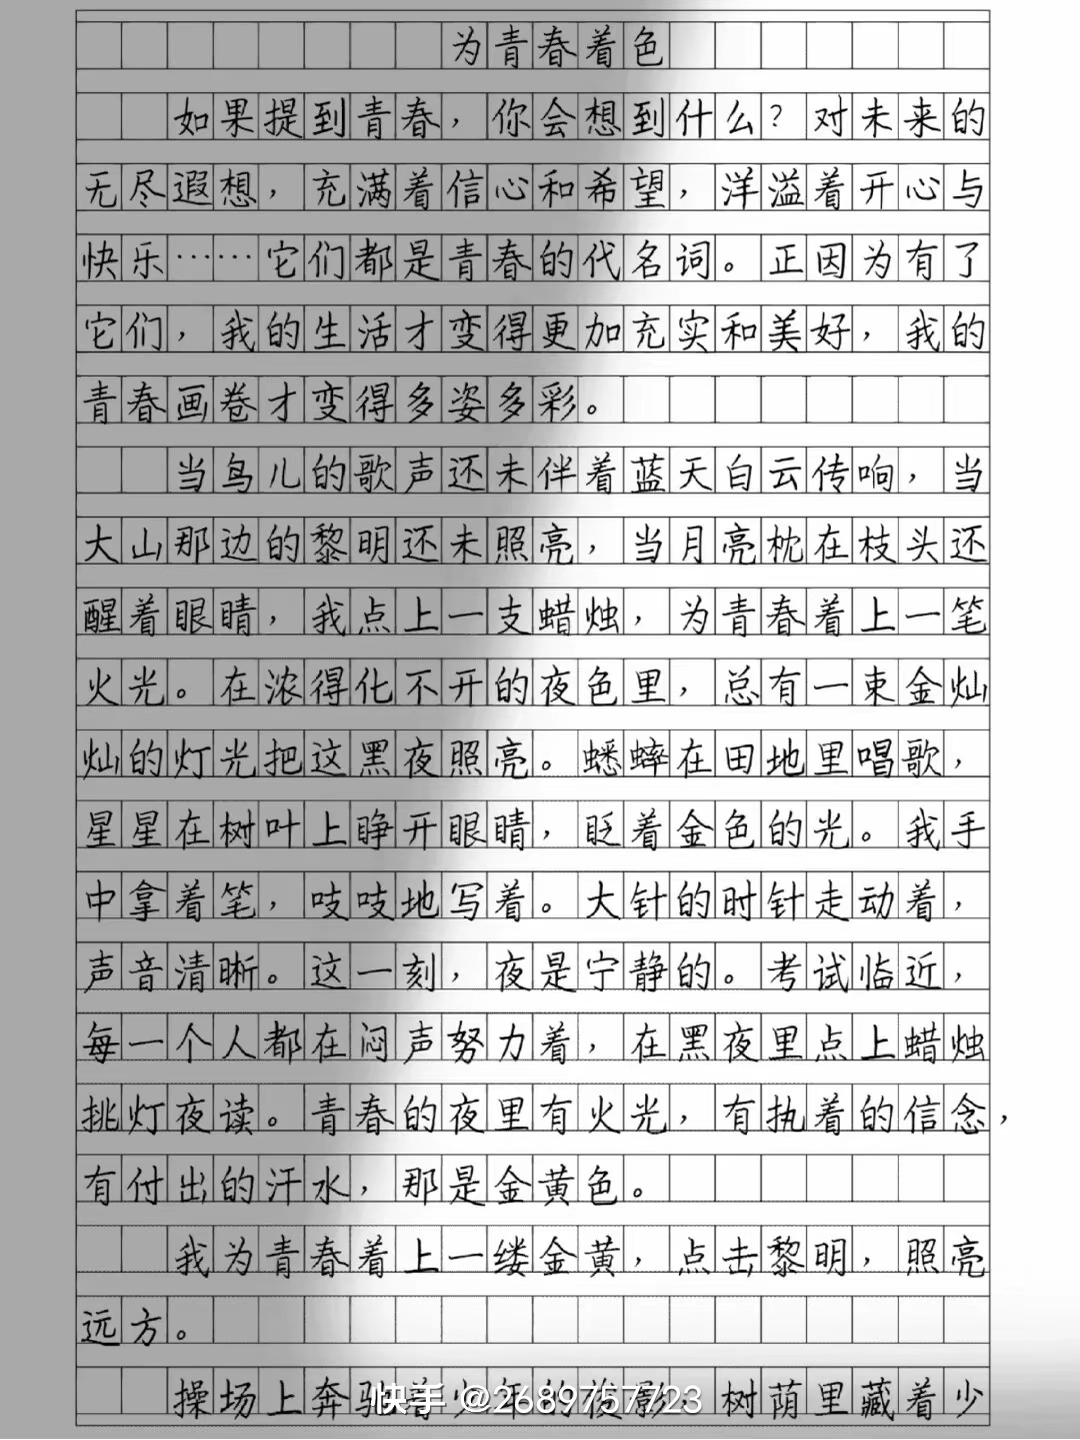 为青春着色
如果提到青春，你会想到什么？对未来的
无尽遐想，充满着信心和希望，洋溢着开心与
快乐……它们都是青春的代名词。正因为有了
它们，我的生活才变得更加充实和美好，我的
青春画卷才变得多姿多彩。
当鸟儿的歌声还未伴着蓝天白云传响，当
大山那边的黎明还未照亮，当月亮枕在枝头还
醒着眼睛，我点上一支蜡烛，为青春着上一笔
火光。在浓得化不开的夜色里，总有一束金灿
灿的灯光把这黑夜照亮。蟋蟀在田地里唱歌，
星星在树叶上睁开眼睛，眨着金色的光。我手
中拿着笔，吱吱地写着。大针的时针走动着，
声音清晰。这一刻，夜是宁静的。考试临近，
每一个人都在闷声努力着，在黑夜里点上蜡烛
挑灯夜读。青春的夜里有火光，有执着的信念，
有付出的汗水，那是金黄色。
我为青春着上一缕金黄，点击黎明，照亮
远方。
操场上奔驰着少年的俊影，树荫里藏着少
快手 @2689757723